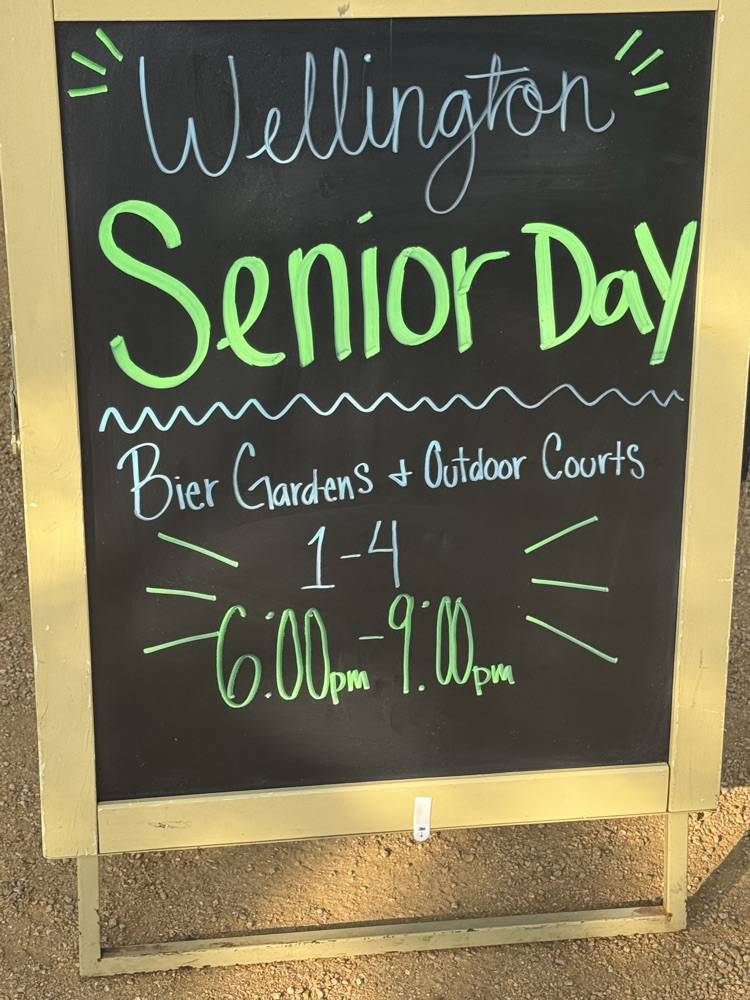 Wellington
Senior Day
Bier Gardens + Outdoor Courts
1-4
6:00pm - 9:00pm